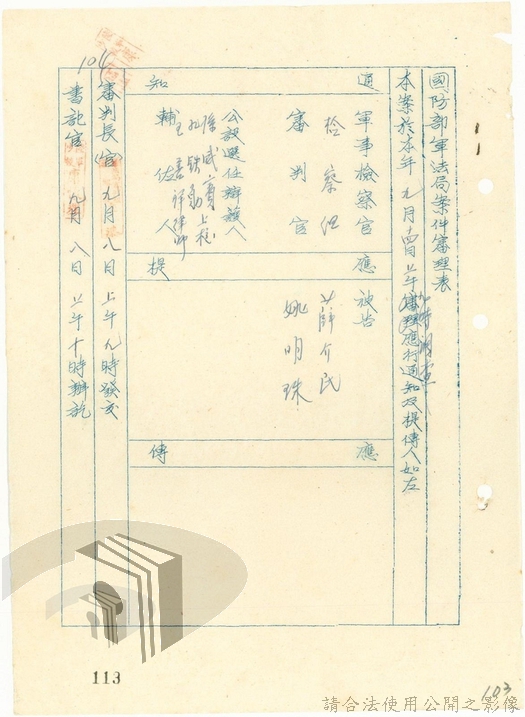 國防部軍法局案件審理表
本案於本年九月 日上午 審理應行通知及提傳人如左
通知
軍事檢察官
檢察
審判官
公設選任辯護人
輔佐人
應提
被告
薛介民
姚明珠
應傳
審判長(官)九月八日上午九時發交
書記官 九月八日上午十時辦訖
104
113
103
請合法使用公開之影像